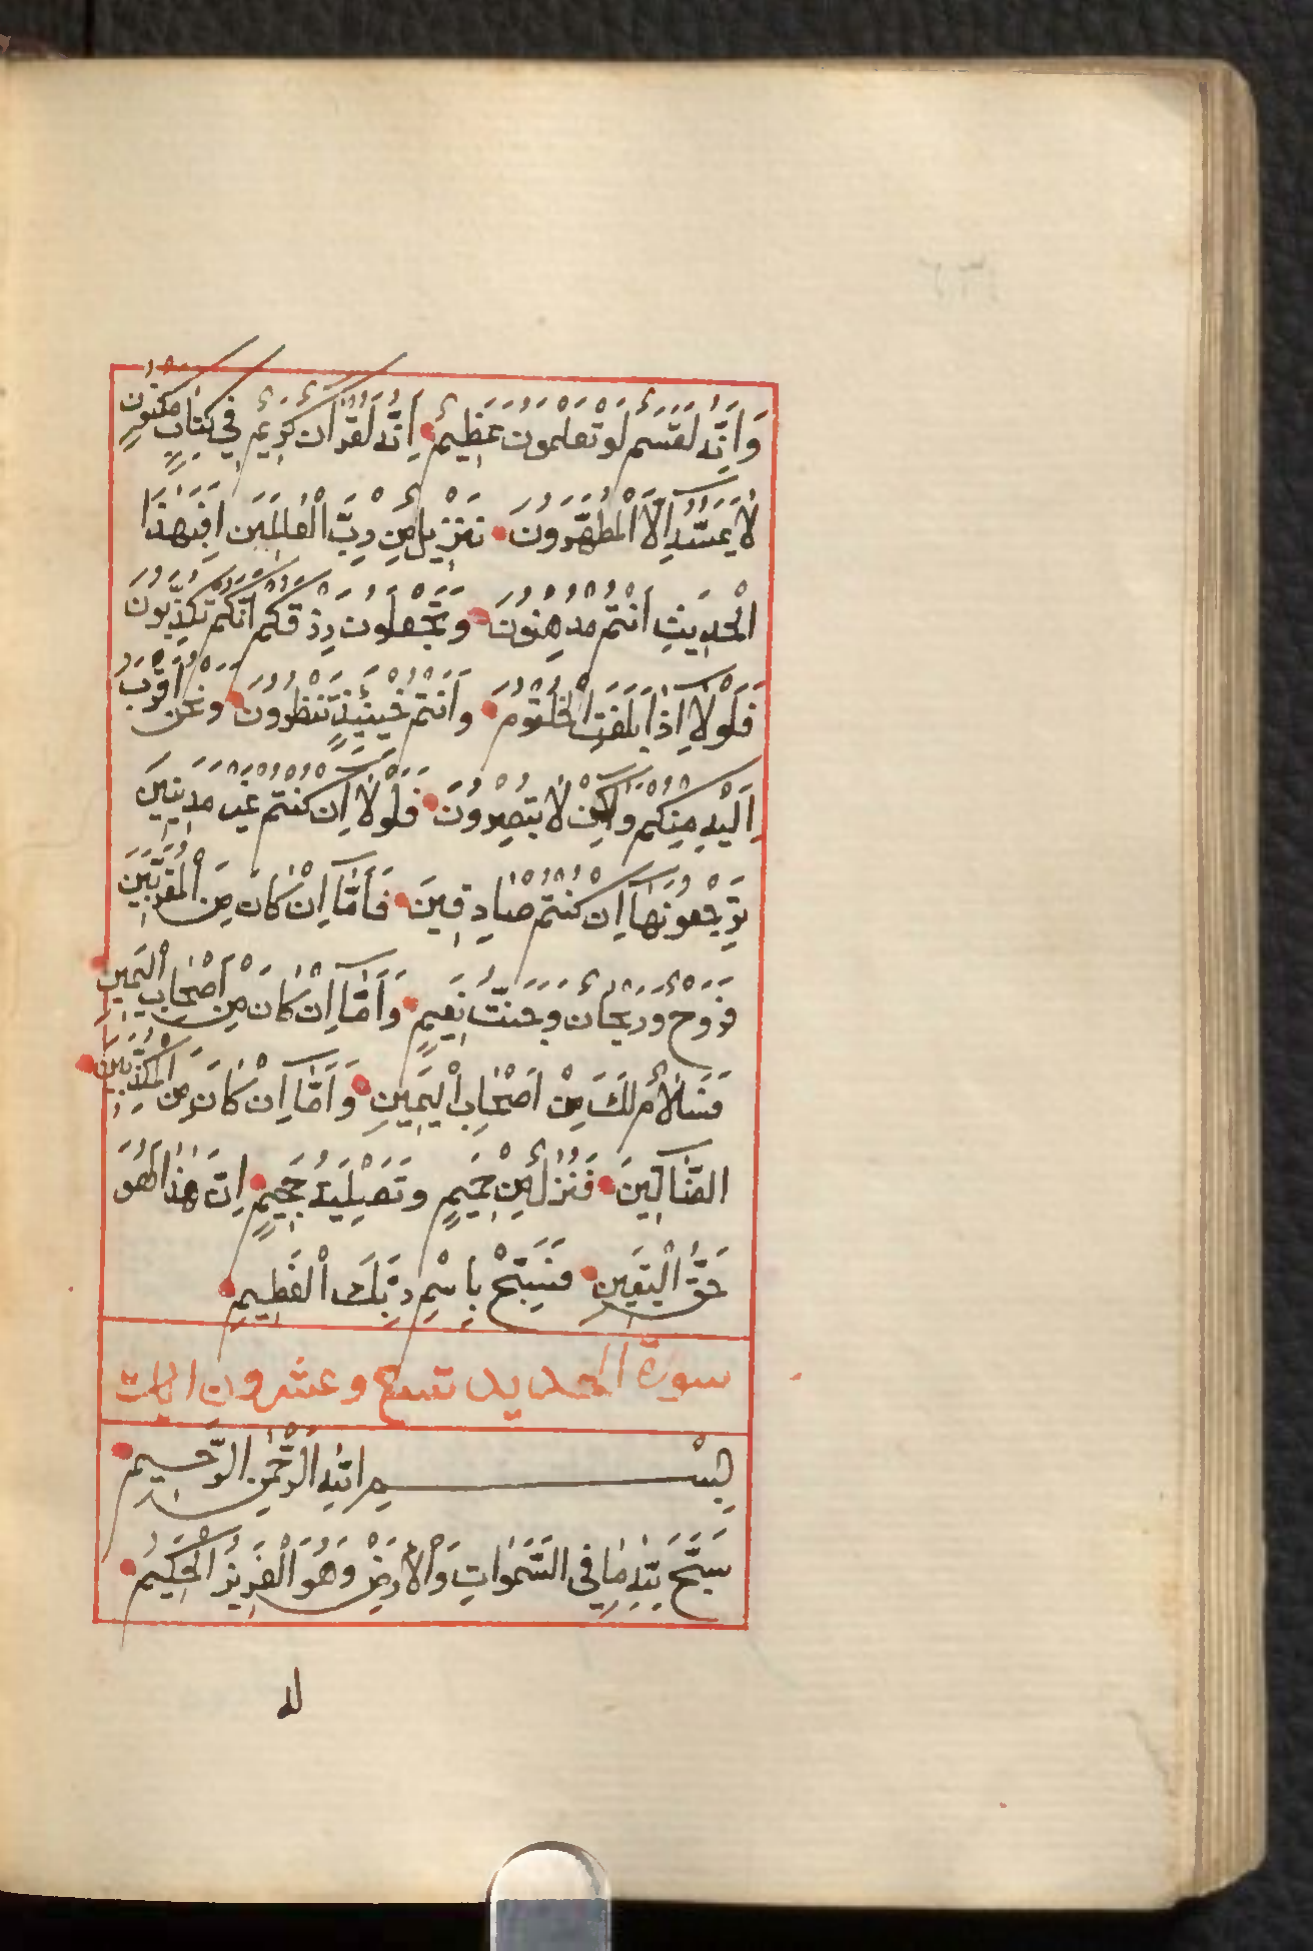 وَاِنَّهُ لَقَسَمٌ لَوْ تَعْلَمُونَ عَظِيمٌ اِنَّهُ لَقُرْاٰنٌ كَرِيمٌ فِي كِتَابٍ مَكْنُونٍ
لَا يَمَسُّهُ اِلَّا الْمُطَهَّرُونَ تَنْزِيلٌ مِنْ رَبِّ الْعَالَمِينَ اَفَبِهٰذَا
الْحَدِيثِ اَنْتُمْ مُدْهِنُونَ وَتَجْعَلُونَ رِزْقَكُمْ اَنَّكُمْ تُكَذِّبُونَ
فَلَوْلَا اِذَا بَلَغَتِ الْحُلْقُومَ وَاَنْتُمْ حِينَئِذٍ تَنْظُرُونَ وَنَحْنُ اَقْرَبُ
اِلَيْهِ مِنْكُمْ وَلٰكِنْ لَا تُبْصِرُونَ فَلَوْلَا اِنْ كُنْتُمْ غَيْرَ مَدِينِينَ
تَرْجِعُونَهَا اِنْ كُنْتُمْ صَادِقِينَ فَاَمَّا اِنْ كَانَ مِنَ الْمُقَرَّبِينَ
فَرَوْحٌ وَرَيْحَانٌ وَجَنَّتُ نَعِيمٍ وَاَمَّا اِنْ كَانَ مِنْ اَصْحَابِ الْيَمِينِ
فَسَلَامٌ لَكَ مِنْ اَصْحَابِ الْيَمِينِ وَاَمَّا اِنْ كَانَ مِنَ الْمُكَذِّبِينَ
الضَّالِّينَ فَنُزُلٌ مِنْ حَمِيمٍ وَتَصْلِيَةُ جَحِيمٍ اِنَّ هٰذَا لَهُوَ
حَقُّ الْيَقِينِ فَسَبِّحْ بِاسْمِ رَبِّكَ الْعَظِيمِ
سورة الحديد تسع وعشرون ايات
بِسْمِ اللّٰهِ الرَّحْمٰنِ الرَّحِيمِ
سَبَّحَ لِلّٰهِ مَا فِي السَّمٰوَاتِ وَالْاَرْضِ وَهُوَ الْعَزِيزُ الْحَكِيمُ
له